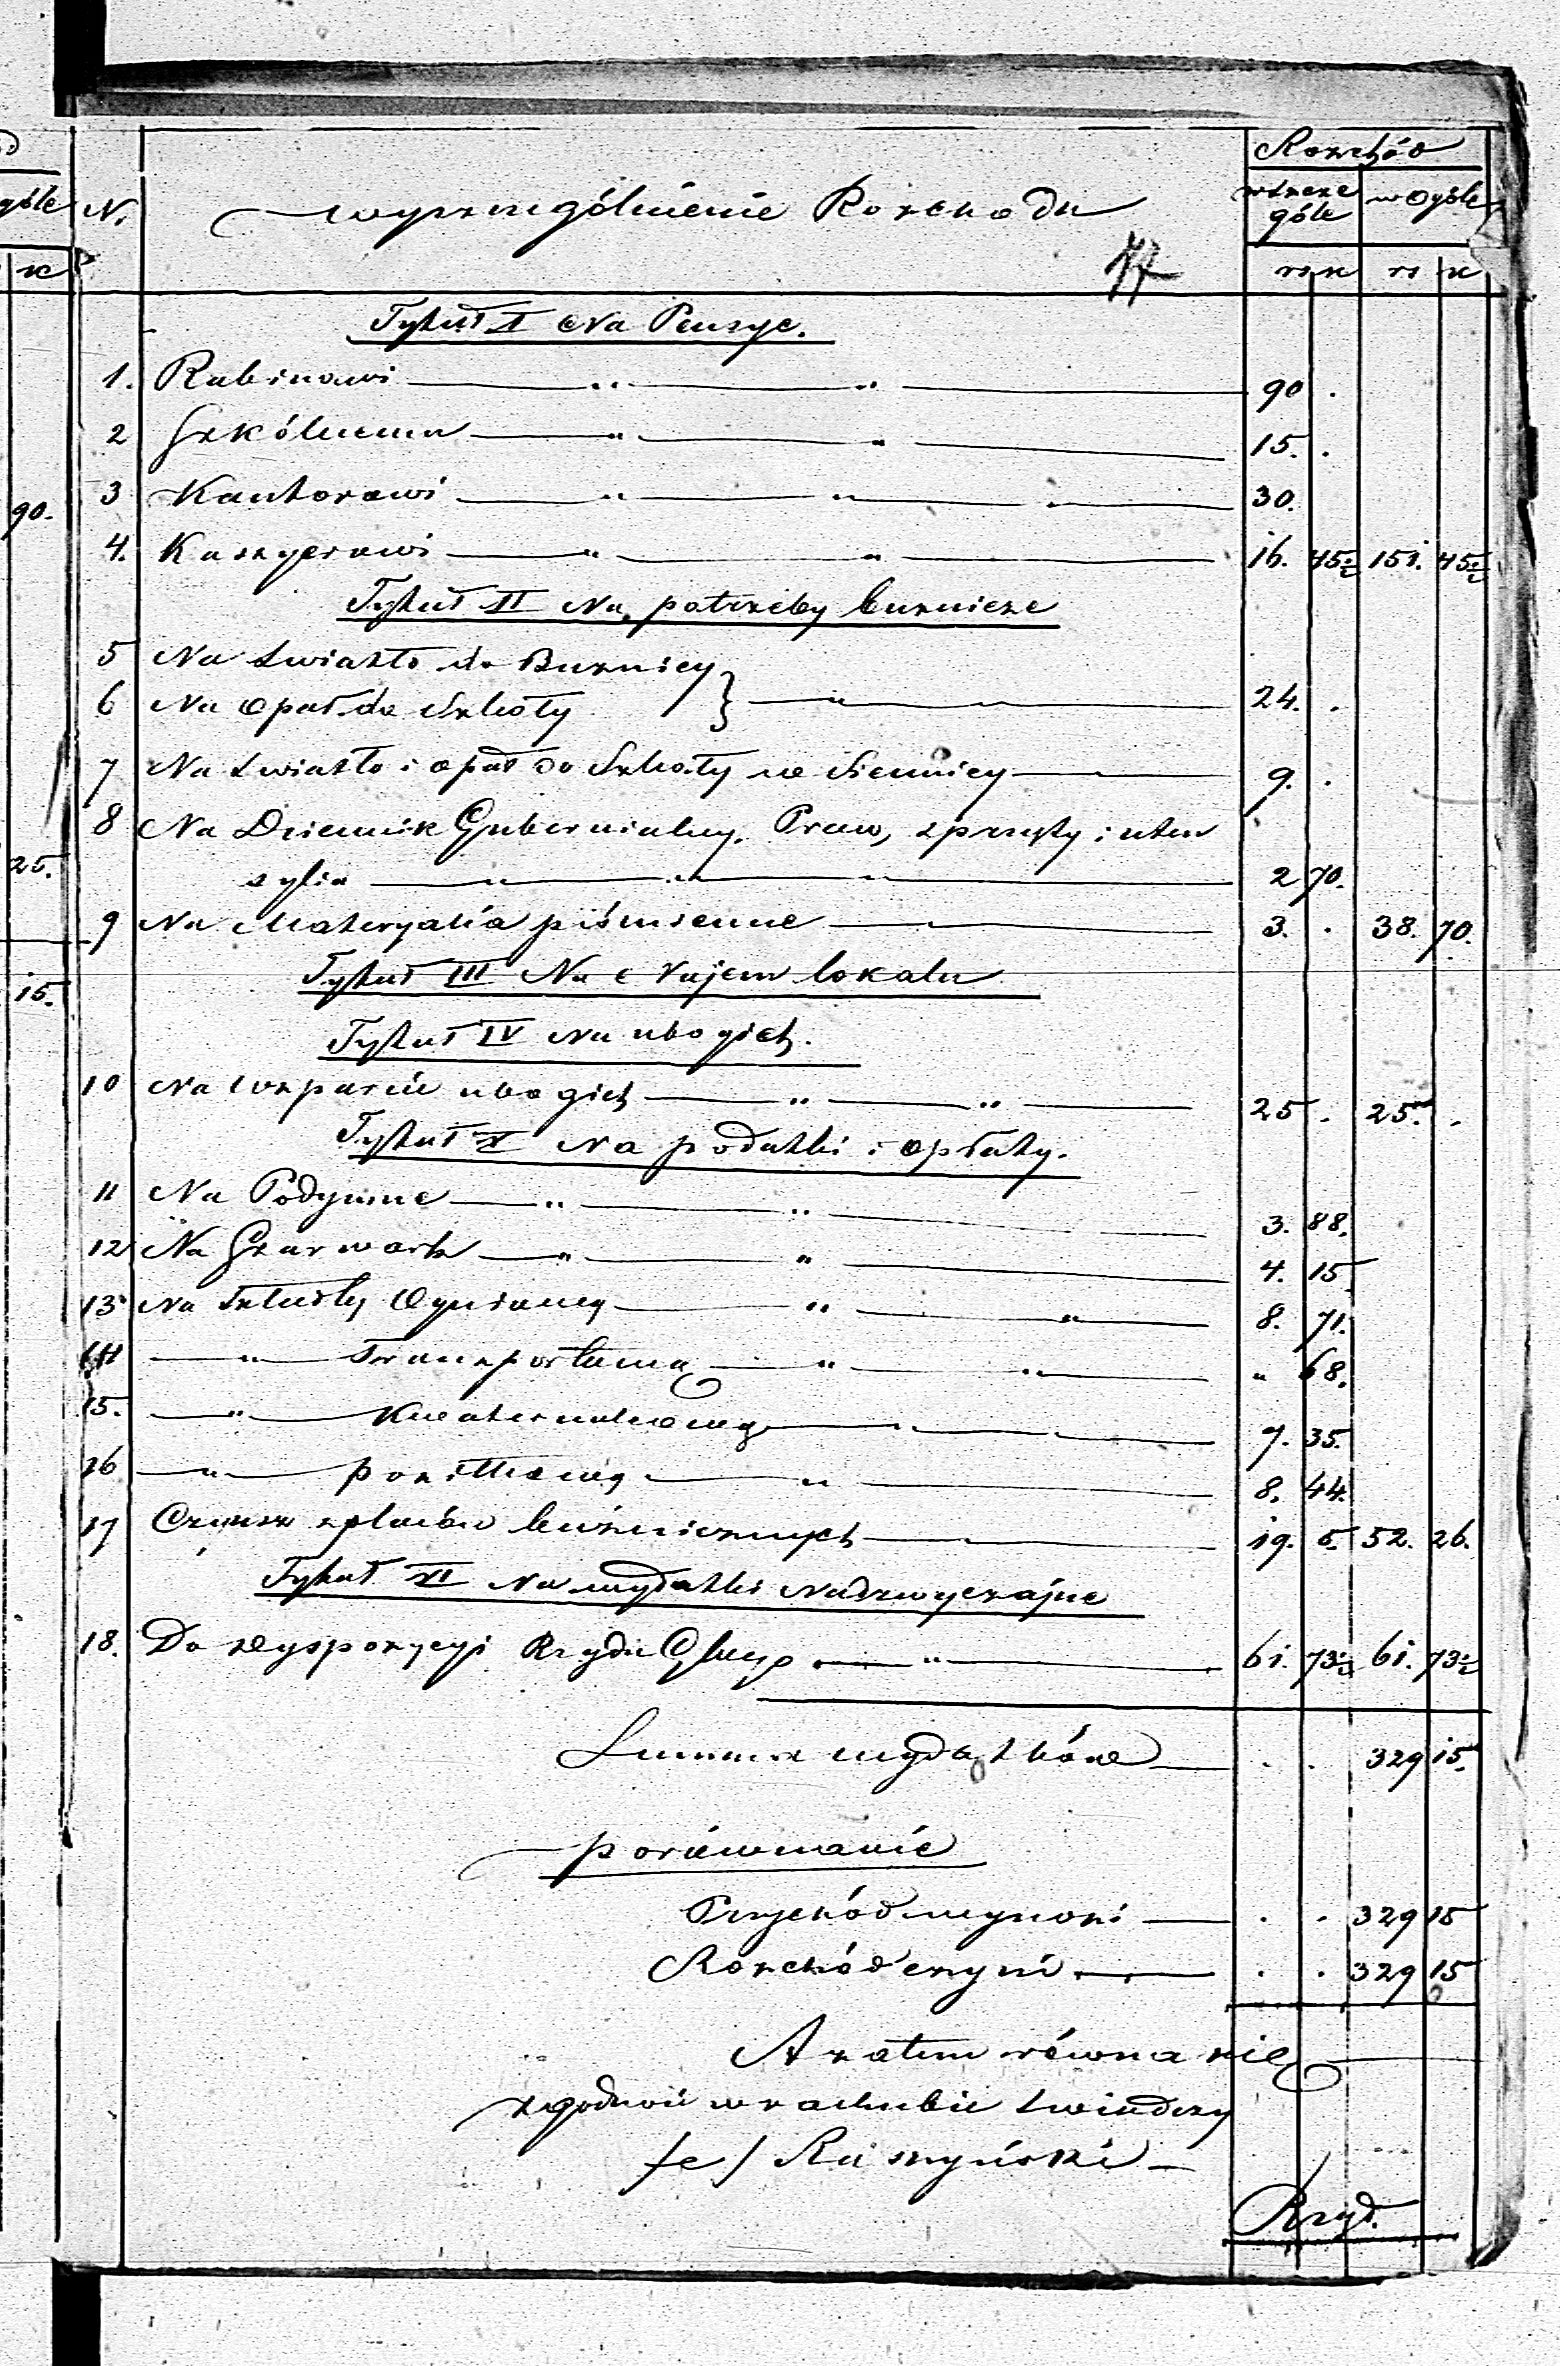 Rozchód
N. wyszczególnienie Rozchodu w szcze w ogóle
góle
77
rs k rs k
Tytuł I Na Pensye.
1. Rabinowi — „ — „ — 90 .
2 Szkólnemu — „ — „ — 15. .
3 Kantorowi — „ — „ — 30.
4. Kassyerowi — „ — „ — 16. 45½ 151. 45½
Tytuł II Na potrzeby buznicze
5 Na swiatło do Buznicy
6 Na opał do Szkoły } — „ — „ — 24. .
7 Na swiatło i opał do Szkoły w Siennicy — 9. .
8 Na Dziennik Gubernialny. Praw, sprzęty i uten
sylia — „ — „ — „ — 2 70.
9 Na Materyalia piśmienne — 3. . 38. 70.
Tytuł III Na Najem lokalu
Tytuł IV Na ubogich.
10 Na wsparcie ubogich — „ — „ — 25 . 25. .
Tytuł V Na podatki i opłaty.
11 Na Podymne — „ — „ — 3. 88.
12 Na Szarwark — „ — „ — 4. 15
13 Na Składkę Ogniową — „ — „ — 8. 71.
14 — „ — Transportową — „ — „ — „ 68.
15. — „ — Kwaterunkową — „ — 7. 35.
16 — „ — posiłkową — „ — 8. 44.
17 Czynsz z placów buźnicznych — 19. 5. 52. 26.
Tytuł VI Na wydatki Nadzwyczajne
18. Do dyspozycyi Rządu Gbnego — „ — 61. 73½ 61. 73½
Summa wydatków — . . 329 15.
porównanie
Przychód wynosi — . . 329 15
Rozchód czyni — . . 329 15
A zatem równa się —
zgodność w rachubie swiadczy
/ Raszyński —
Rząd.
90.
25.
15.